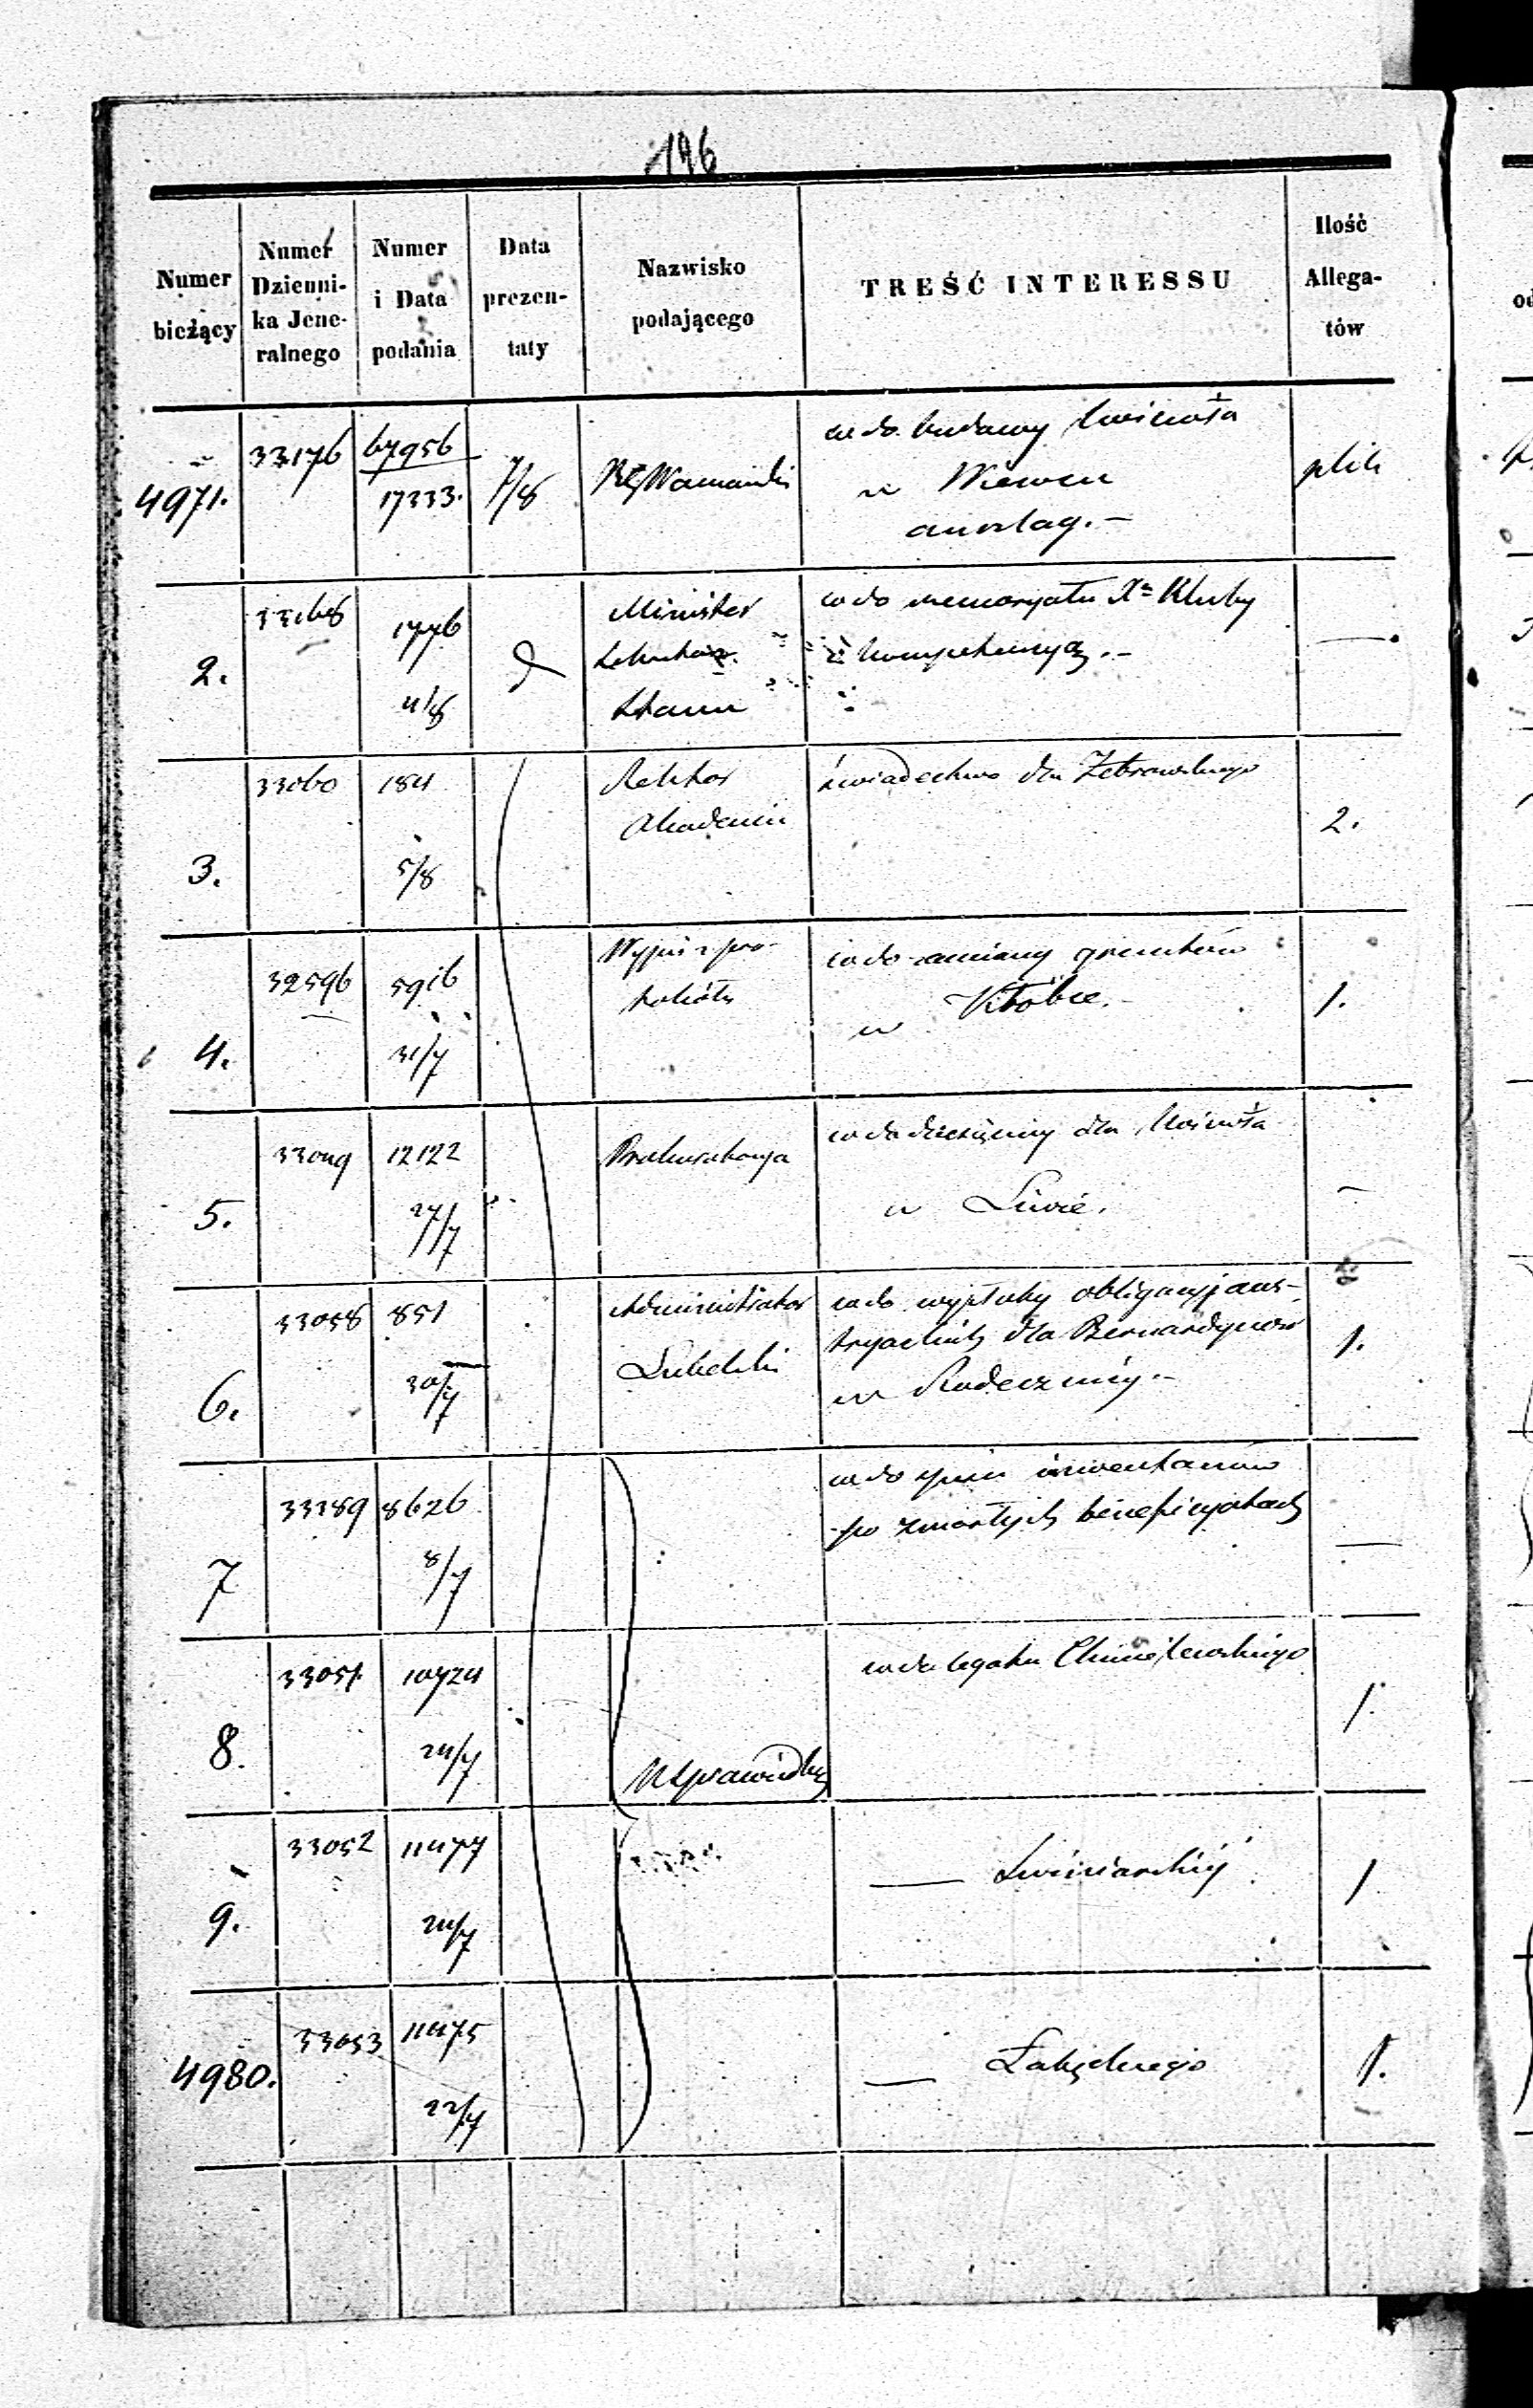 196
Numer bieżący
Numer Dzienni- ka Jene- ralnego
Numer i Data podania
Data prezen- taty
Nazwisko podającego
TREŚĆ INTERESSU
Ilość Allega- tów
4971.
33176
67956
17333.
7/8
co do budowy kościoła
w
anszlag. –
plik
2.
1776
4/8
Minister
Sekretarz
Stanu
co do memoryału Xa Kluby
o kompetencyą. –
—.
3.
33060
184
5/8
Rektor
Akademii
świadectwo dla Żebrowskiego
2.
4.
32596
5916
31/7
Wypis z pro-
tokółu
co do zamiany gruntów
w Kłóbce. –
1.
5.
33049
12122
27/7
Prokuratorya
co do dziesięciny dla kościoła
w Liwie.
–
6.
33058
851
30/7
Administrator
Lubelski
co do wypłaty obligacyj aus-
tryackich dla Bernardynów
w Radecznicy. –
1.
7
33189
8626
8/7
co do spisu inwentarzów
po zmarłych beneficyatach
—
8.
33051.
10724
24/7
K Sprawiedliw
co do legatu Chmielewskiego
1.
9.
33052
11477
24/7
— Świniarskiej
1
4980.
33053
11475
22/7
— Łabęckiego
1.